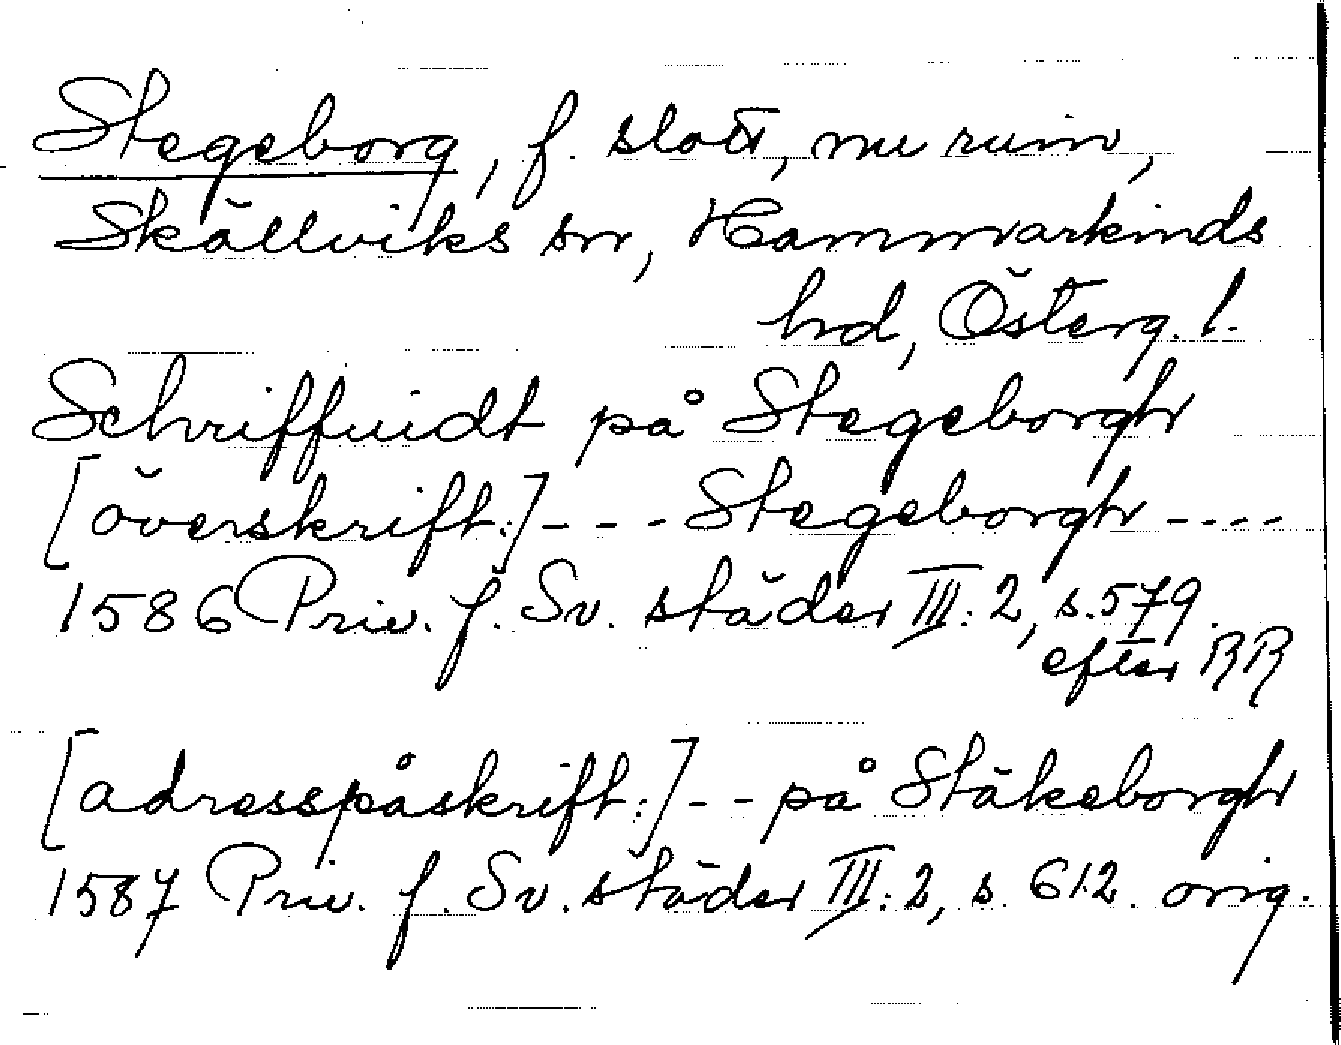 Stegeborg, f. slott, nu ruin,
Skällviks sn, Hammarkinds
hd, Österg. l.
Schriffuidt på Stegeborgh
[överskrift:] - - - Stegeborgh - - - -
1586 Priv. f. Sv. städer III: 2, s. 579.
efter RR
[adresspåskrift:] - - på Stäkeborgh
1587 Priv. f. Sv. städer III: 2, s. 612. orig.